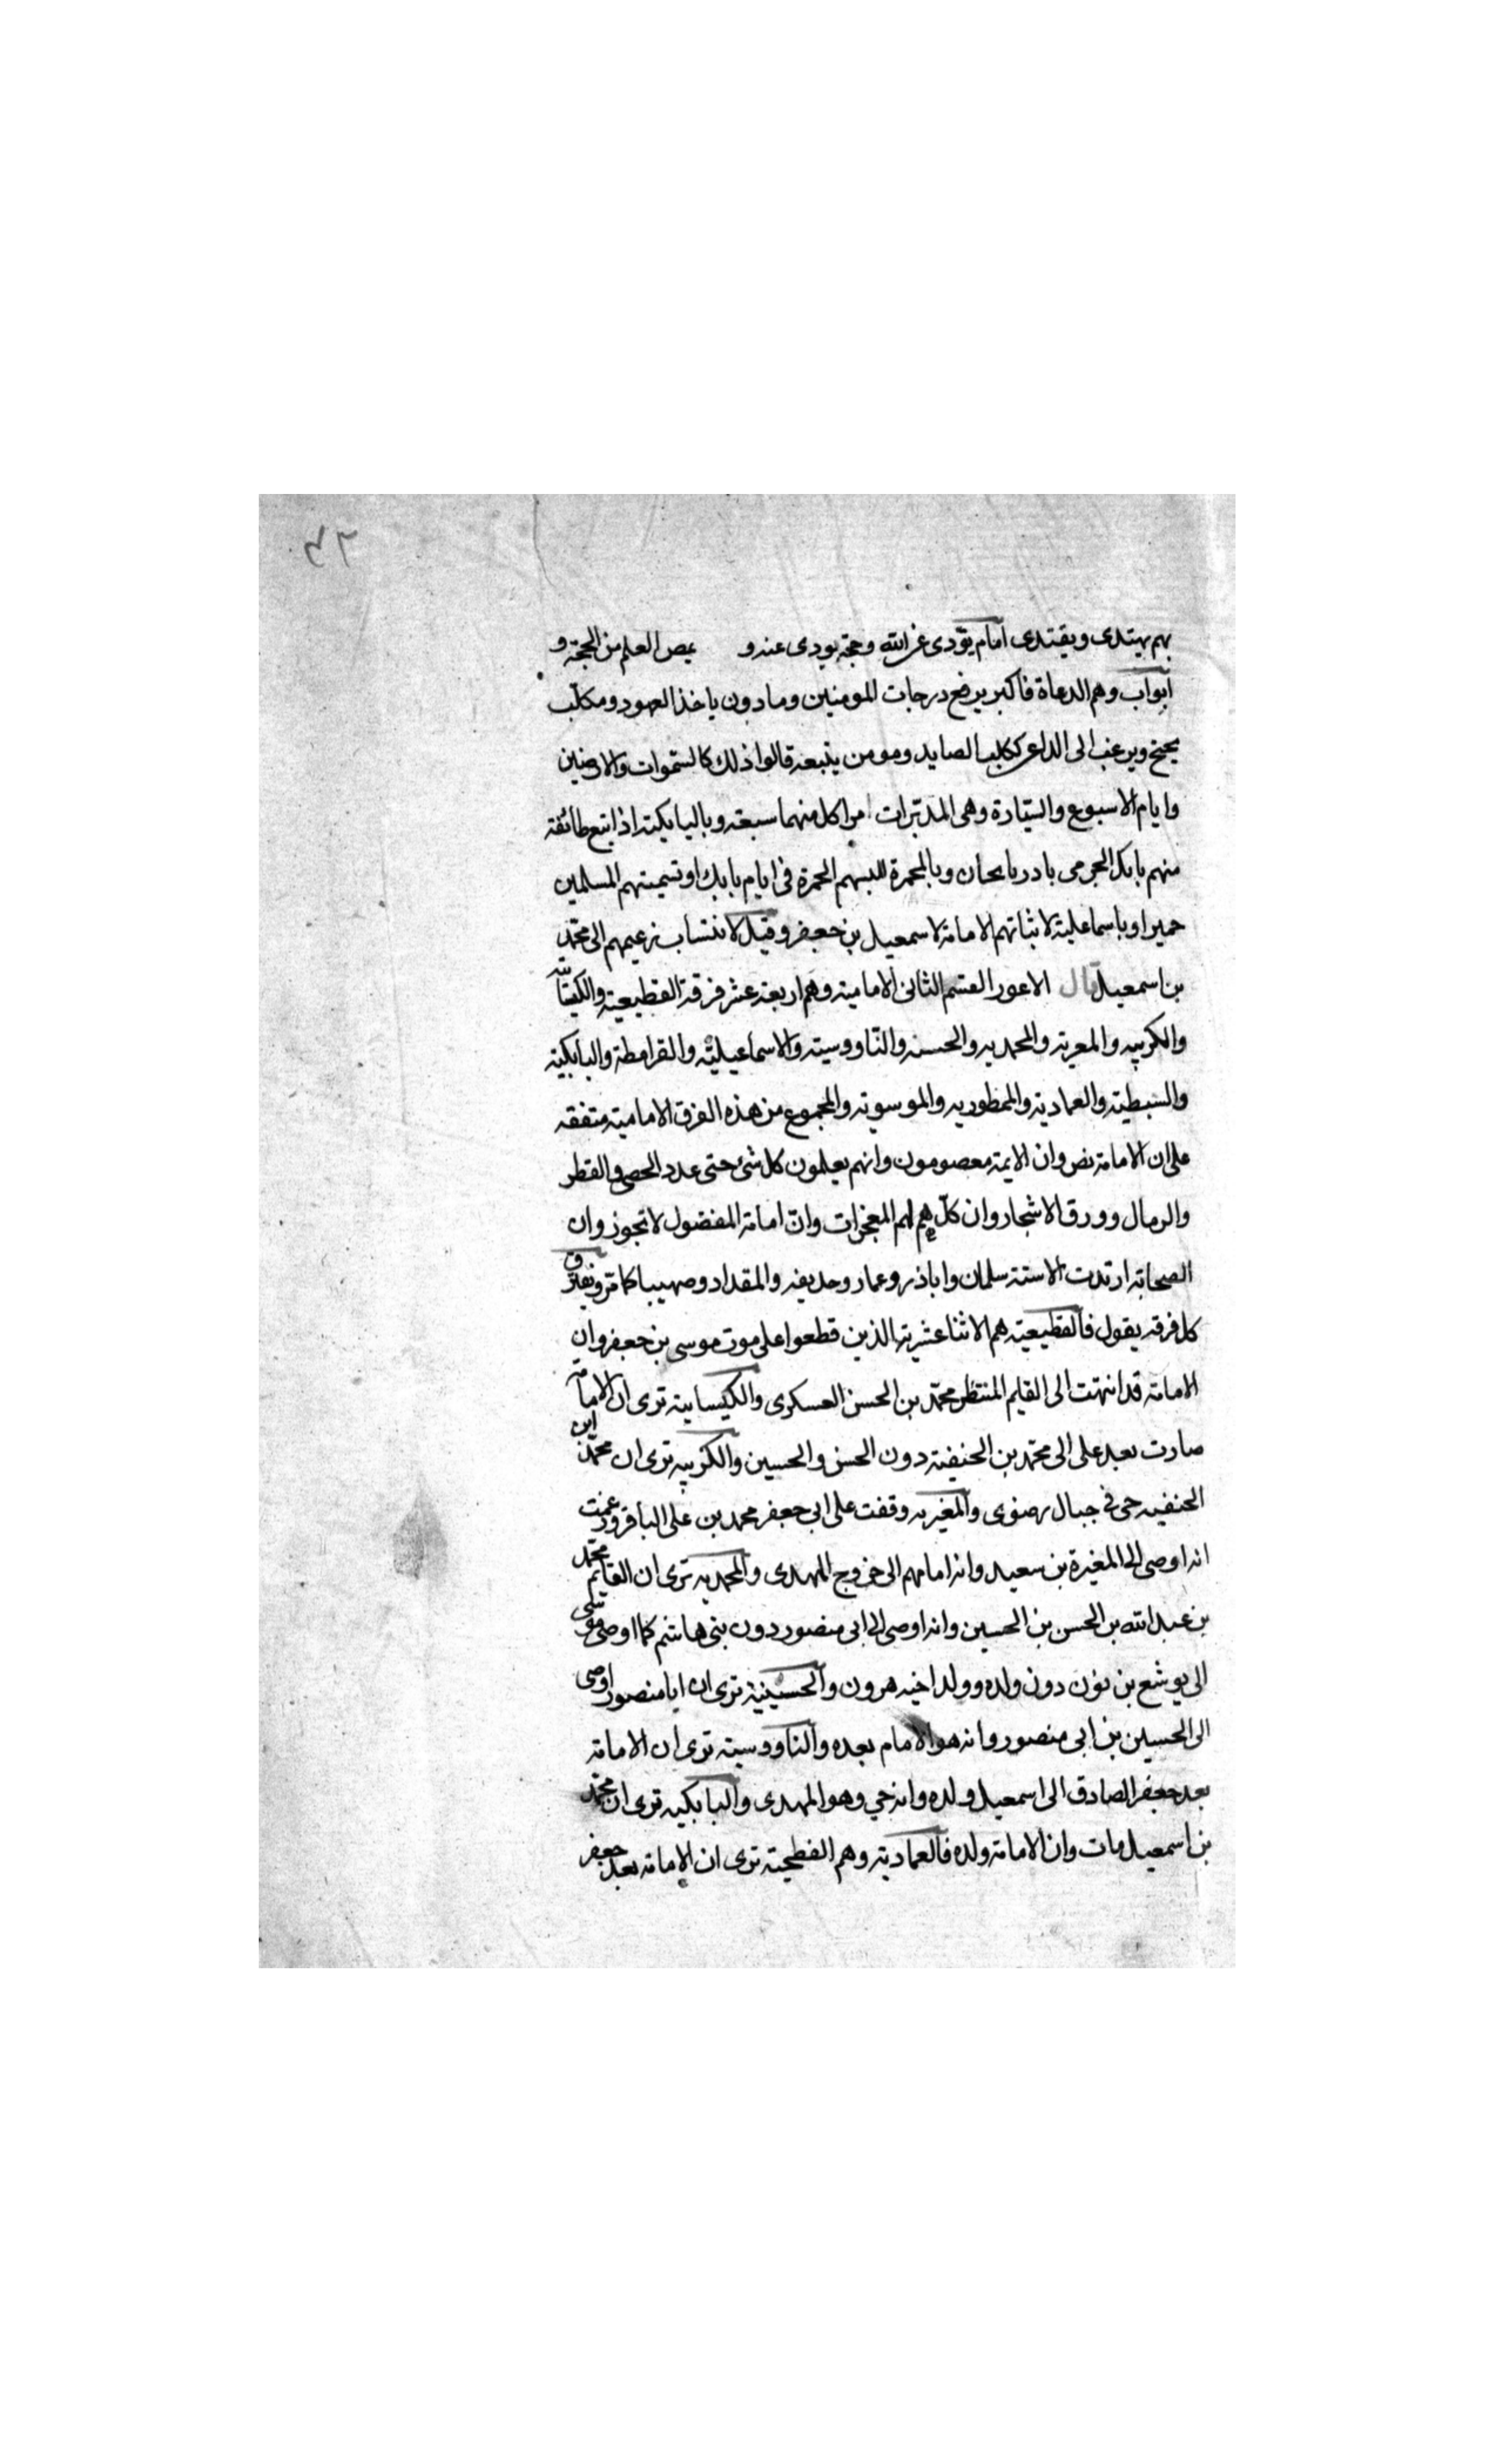 ٣٦
بهم يهتدى ويقتدى امام يؤدى عن الله وحجة يودى عنه و يمص العلم من الحجة و
ابواب وهم الدعاة فاكبر يرفع درجات المومنين وماذون ياخذ العهود ومكلب
يحتج ويرغب الى الداعى ككلب الصايد ومومن يتبعه قالوا ذلك كالسموات والارضين
وايام الاسبوع والسيارة وهى المدبرات امرا كل منهما سبعة وبالبابكية اذ اتبع طائفة
منهم بابك الجرمى بادربايحان وبالمحمرة للبسهم الحمرة فى ايام بابك او تسميتهم المسلمين
حميرا وباسماعلية لاثباتهم الامامة لاسمعيل بن جعفر وقيل لانتساب زعيمهم الى محمد
بن اسمعيل قال الاعور القسم الثانى الامامية وهم اربعة عشر فرقة القطيعية والكيسانية
والكربيه والمعرية والمحمديه والحسنه والناووسية والاسماعيلية والقرامطة والبابكية
والسبطية والعمادية والممطوريه والموسوية والمجموع من هذه الفرق الامامية متفقه
على ان الامامة نص وان الايمة معصومون وانهم يعلمون كل شئ حتى عدد الحصى والقطر
والرمال وورق الاشجار وان كلهم لهم المعجزات وان امامة المفضول لا تجوز وان
الصحابة ارتدت الا ستة سلمان واباذر وعمار وحديفه والمقداد وصهيبا كما مر وتفترق
كل فرقه يقول فالقطيعية هم الاثنا عشرية الذين قطعوا على موت موسى بن جعفر وان
الامامة قد انتهت الى القايم المنتظر محمد بن الحسن العسكرى والكيسانية ترى ان الامامة
صارت بعد على الى محمد بن الحنيفة دون الحسن والحسين والكربيه ترى ان محمد ابن
الحنفيه حى فى جبال رضوى والمغيريه وقفت على ابى جعفر محمد بن على الباقر وزعمت
انه اوصى الى المغيرة بن سعيد وانه امامهم الى خروج المهدى والمحمديه ترى ان القايم محمد
بن عبد الله بن الحسن بن الحسين وانه اوصى الى ابى منصور دون بنى هاشم كما اوصى موسى
الى يوشع بن نون دون ولده وولد اخيه هرون والحسينية ترى ان ابا منصور اوصى
الى الحسين بن ابى منصور وانه هو الامام بعده والناووسية ترى ان الامامة
بعد جعفر الصادق الى اسمعيل ولده وانه حي وهو المهدى والبابكيه ترى ان محمد
بن اسمعيل مات وان الامامة ولده فالعمادية وهم الفطحية ترى ان الامامة بعد جعفر